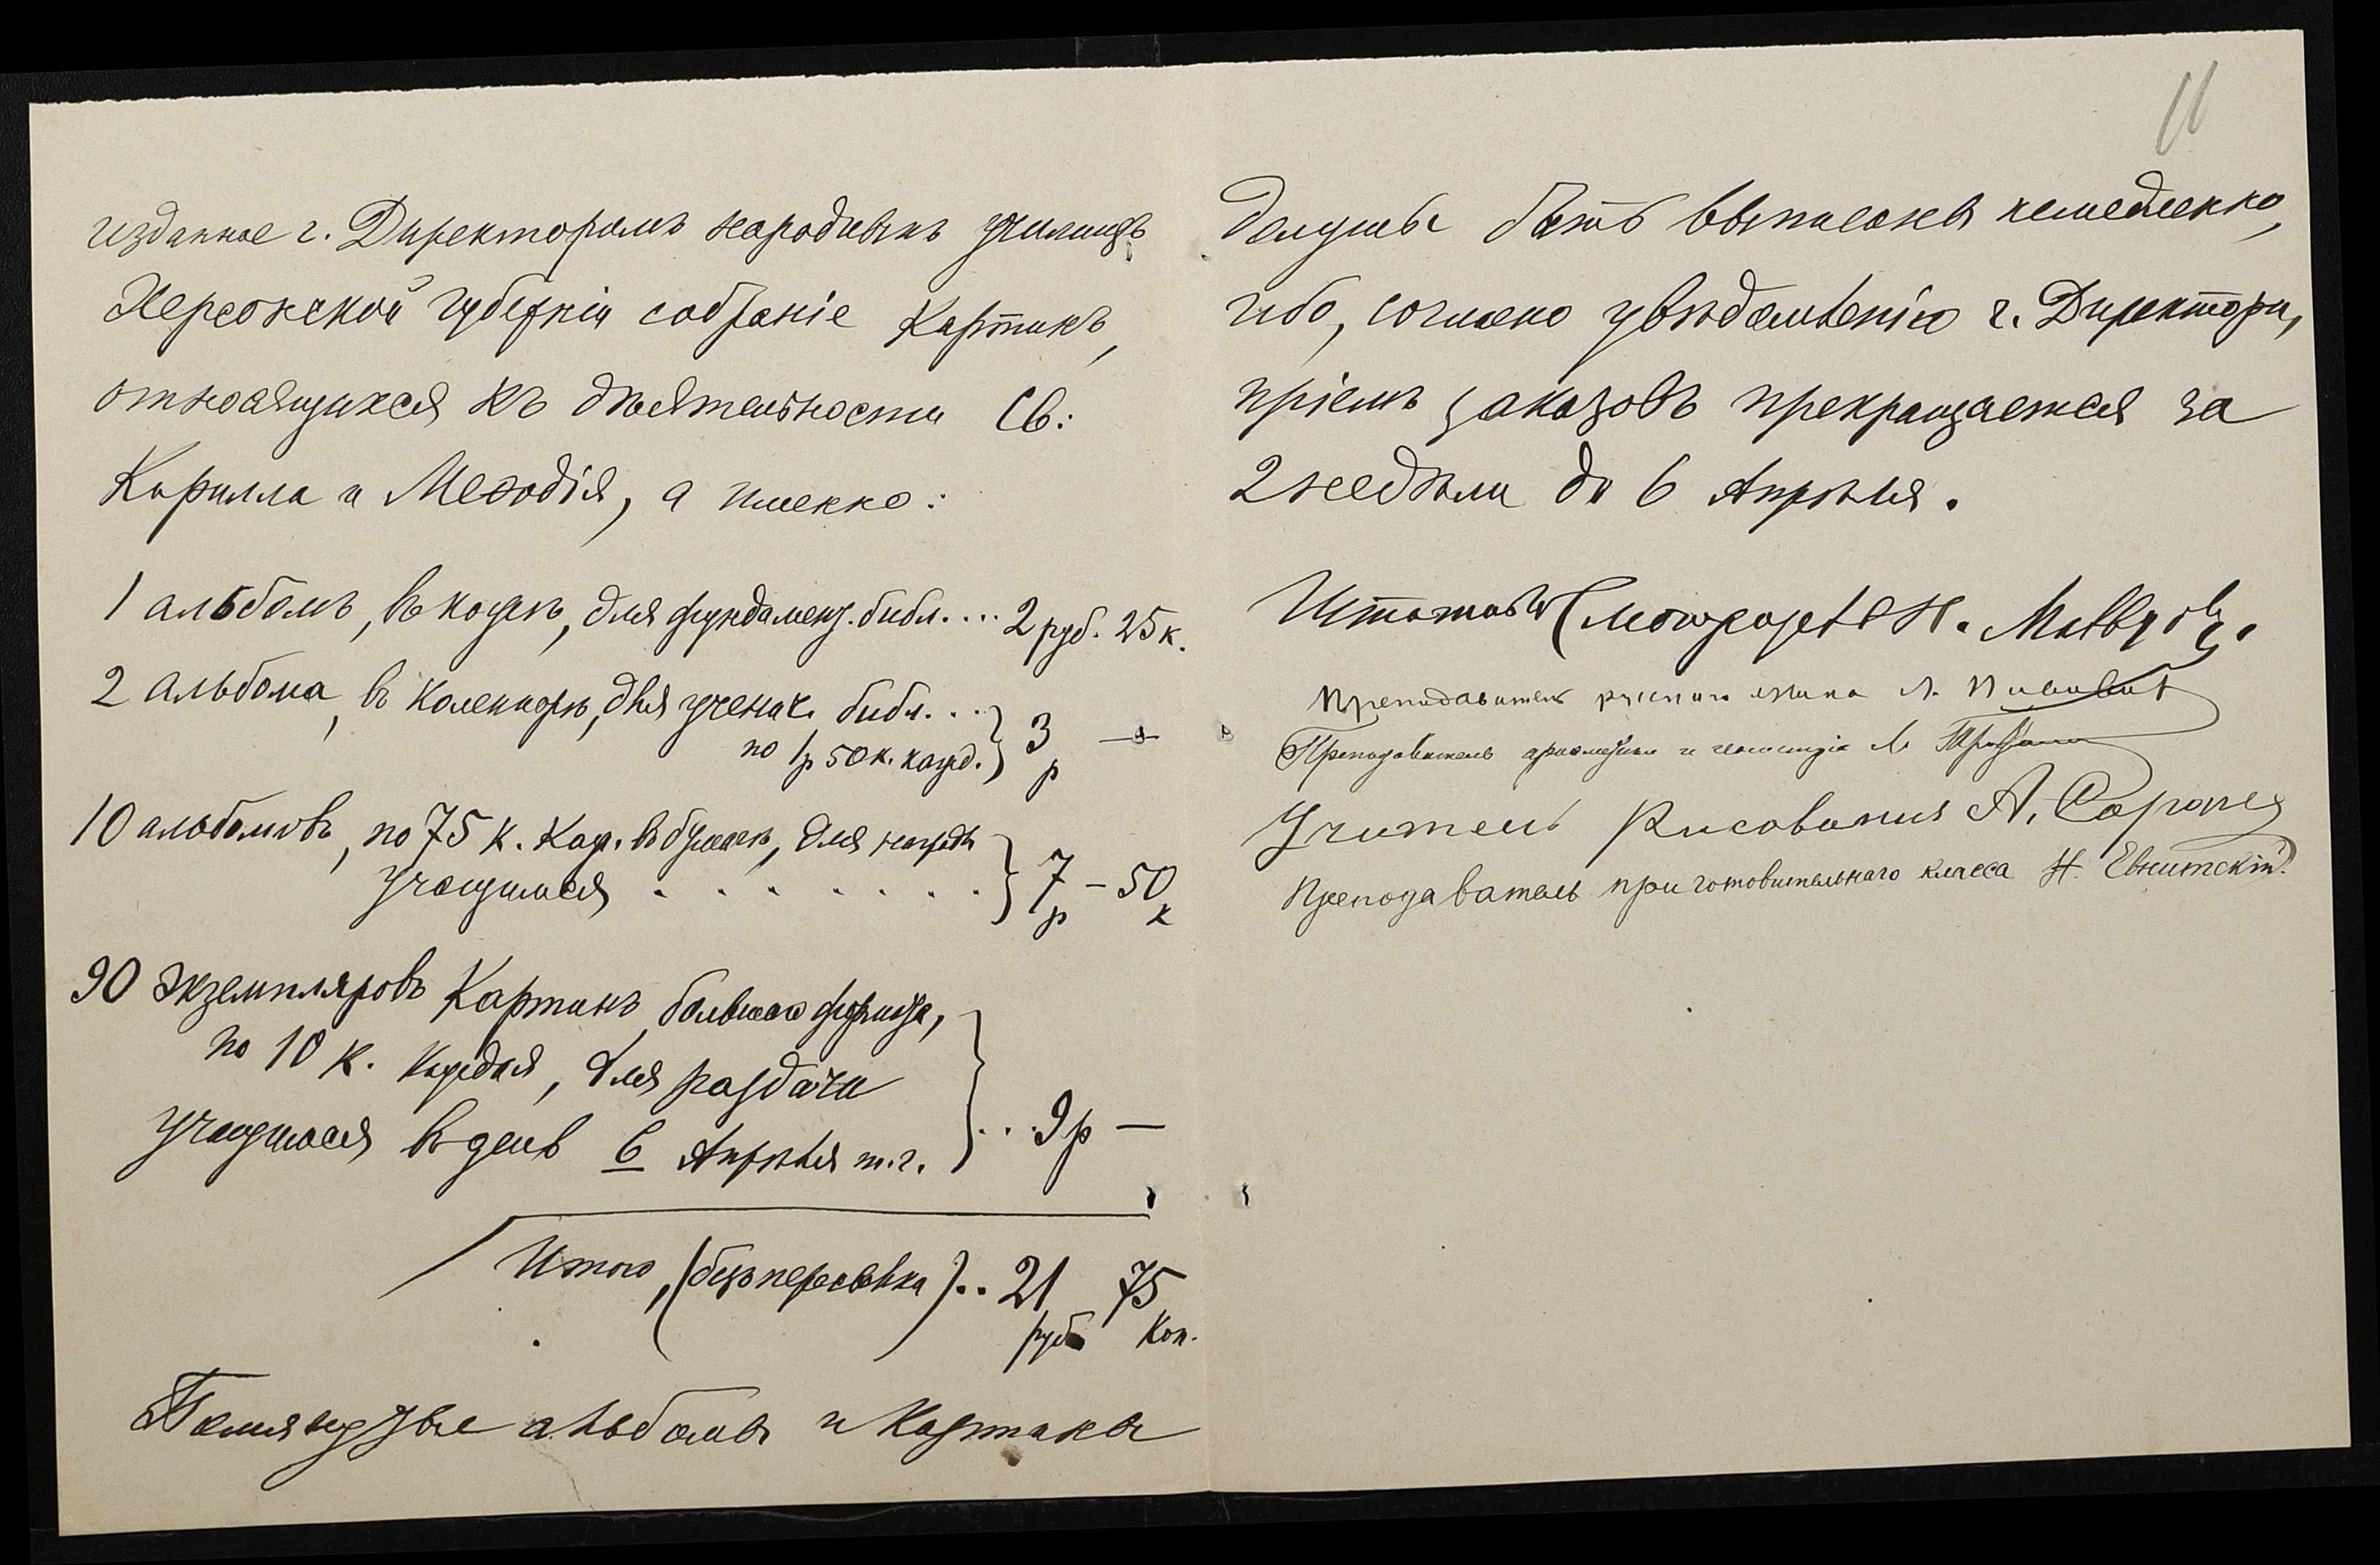 11
изданное г. Директоромъ народныхъ училищъ
Херсонской губерніи собраніе картинъ,
относящихся къ дѣятельности Св:
Кирилла и Меѳодія, а именно:
1 альбомъ, въ кожѣ, для фундамент. библ.... 2 руб. 25 к.
2 альбома, въ коленкорѣ, для ученич. библ. . . .
по 1 р 50 к. кажд. } 3 р —
10 альбомовъ, по 75 к. кажд. въ бумагѣ, для наградъ
учащимся . . . . . . . . } 7 р – 50 к
90 экземпляровъ картинъ большого формата,
по 10 к. каждая, для раздачи
учащимся въ день 6 Апрѣля т. г. } . . . 9 р —
Итого, (безъ пересылки).. 21 руб 75 коп.
альбомы и картины
должны быть выписаны немедленно,
ибо, согласно увѣдомленію г. Директора,
пріемъ заказовъ прекращается за
2 недѣли до 6 Апрѣля.
Штатный Смотритель Н.
Преподаватель русскаго языка Л.
Преподаватель ариѳметики и геометріи
Учитель Рисованія А.
Преподаватель приготовительнаго класса Н.